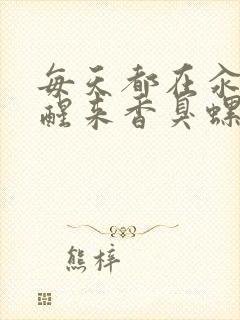 每天都在汆
醒来香臭螺
熊梓